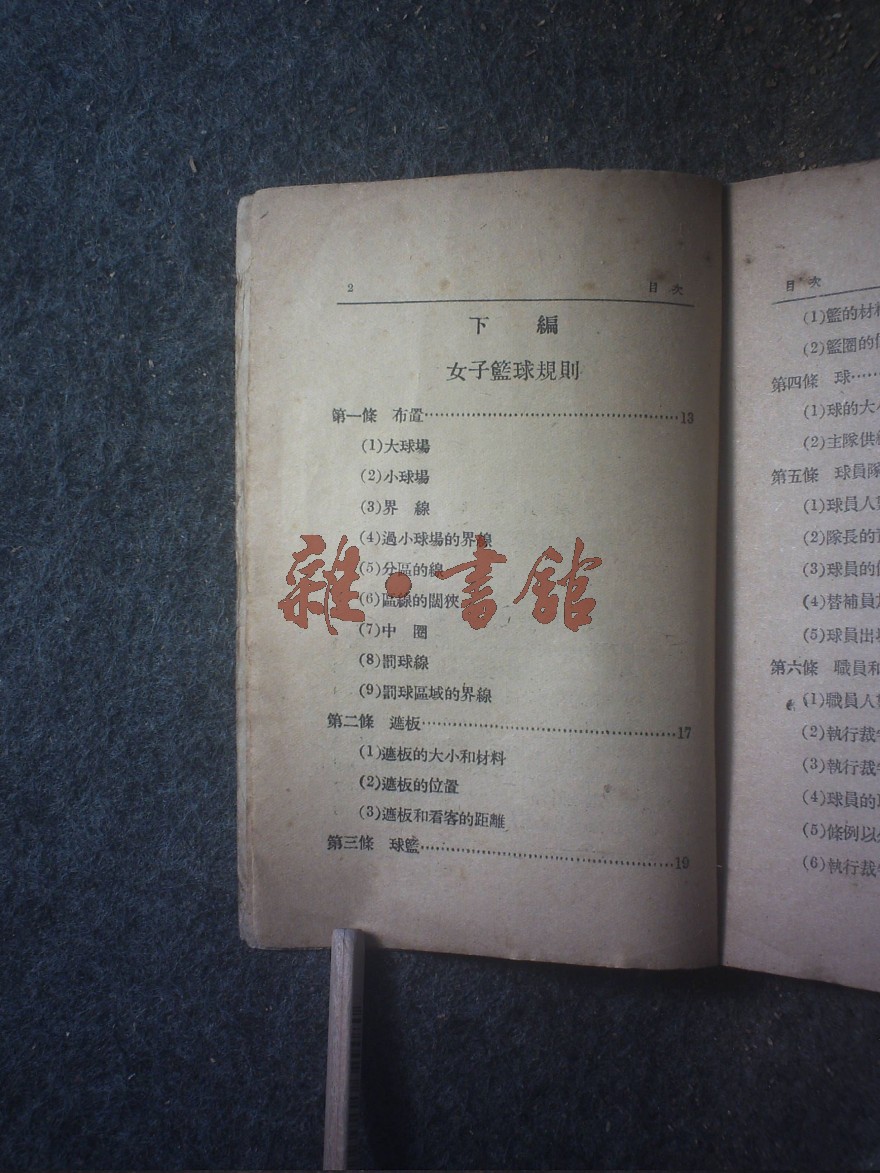 2 目次
下 編
女子籃球規則
第一條 布置……………………………………13
(1)大球場
(2)小球場
(3)界 線
(4)過小球場的界線
(5)分區的線
(6)區線的闊狹
(7)中 圈
(8)罰球線
(9)罰球區域的界線
第二條 遮板……………………………………17
(1)遮板的大小和材料
(2)遮板的位置
(3)遮板和看客的距離
第三條 球籃……………………………………19
雜·書館
目次
(1)籃的材
(2)籃圈的
第四條 球……
(1)球的大
(2)主隊供
第五條 球員隊
(1)球員人
(2)隊長的
(3)球員的
(4)替補員
(5)球員出
第六條 職員和
(1)職員人
(2)執行裁
(3)執行裁
(4)球員的
(5)條例以
(6)執行裁